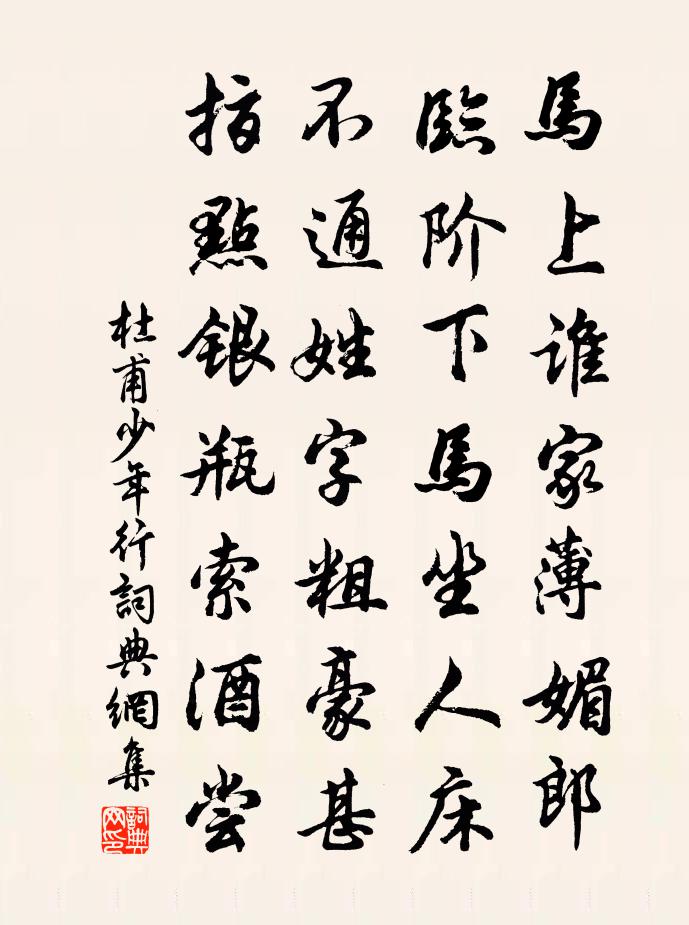 馬上谁家薄媚郎
臨阶下馬坐人床
不通姓字粗豪甚
指點银瓶索酒尝
杜甫少年行詞典網集
詞典网印